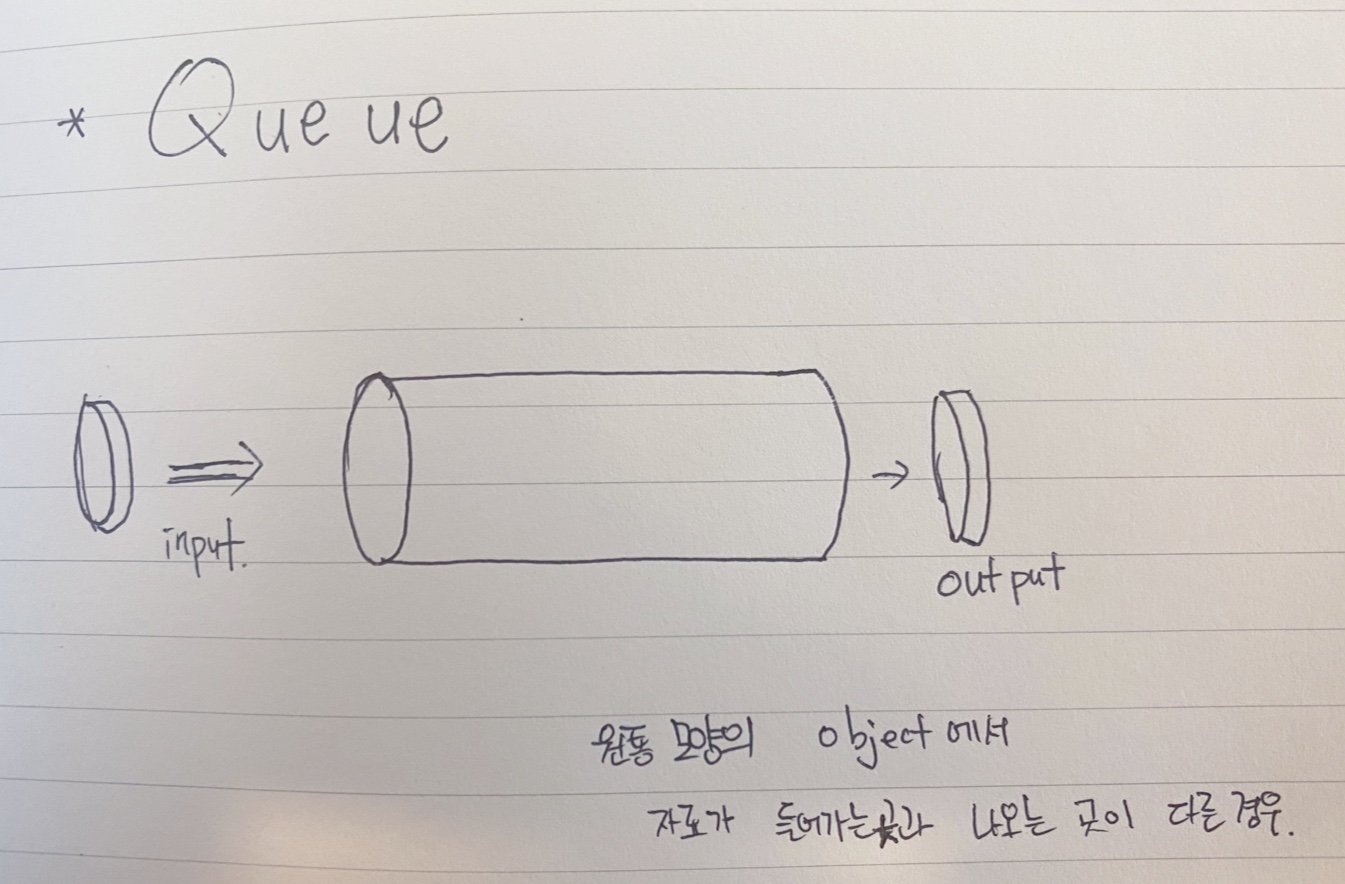 * Queue
input.
output
원통 모양의 object에서
자료가 들어가는곳과 나오는 곳이 다른 경우.